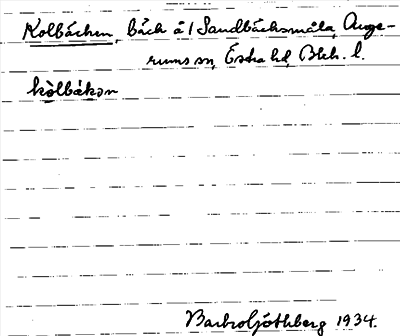 Kolbäcken, bäck å 1 Sandbäcksmåla, Auge-
rums sn, Östra hd, Blek. l.
kòlbäkən
Barbro Ljóthberg 1934.